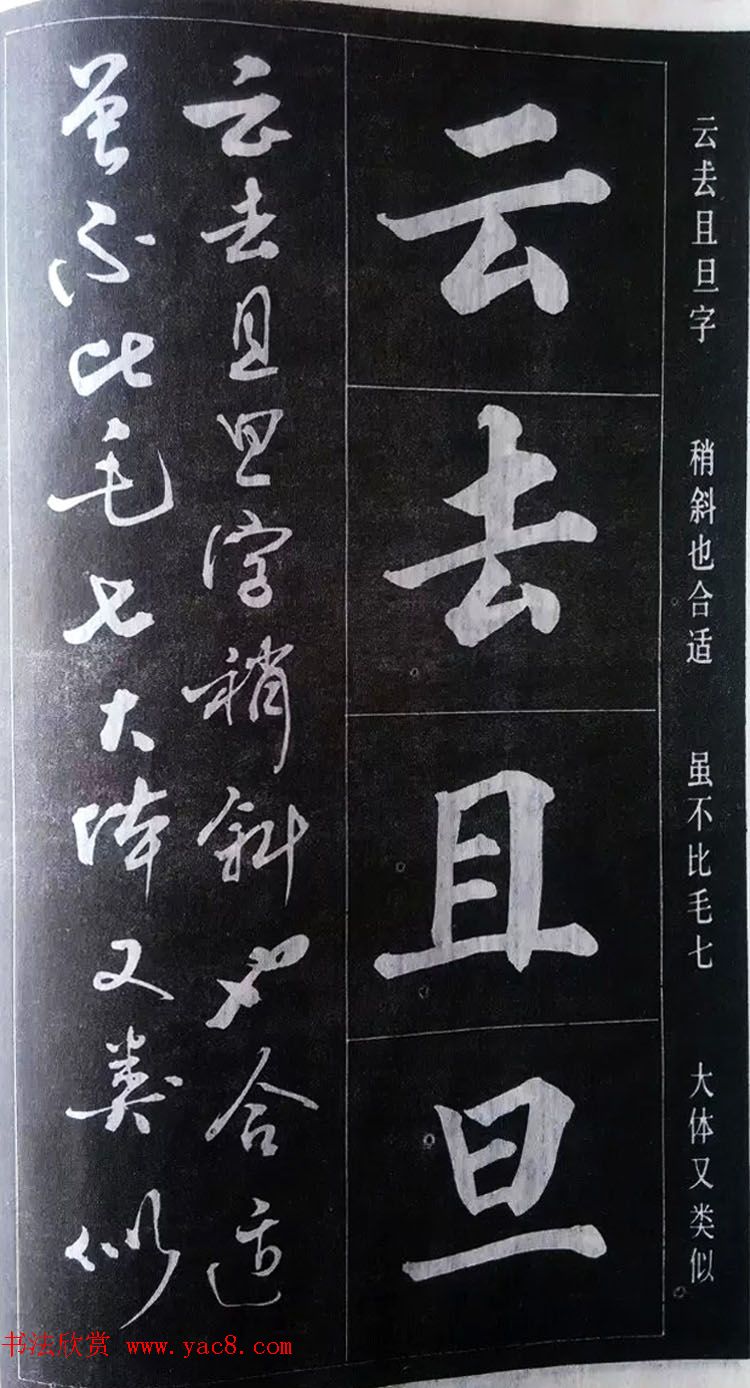 云去且旦字 稍斜也合适 虽不比毛七 大体又类似
云去且旦
云去且旦字稍斜也合适
虽不比毛七大体又类似
书法欣赏 www.yac8.com